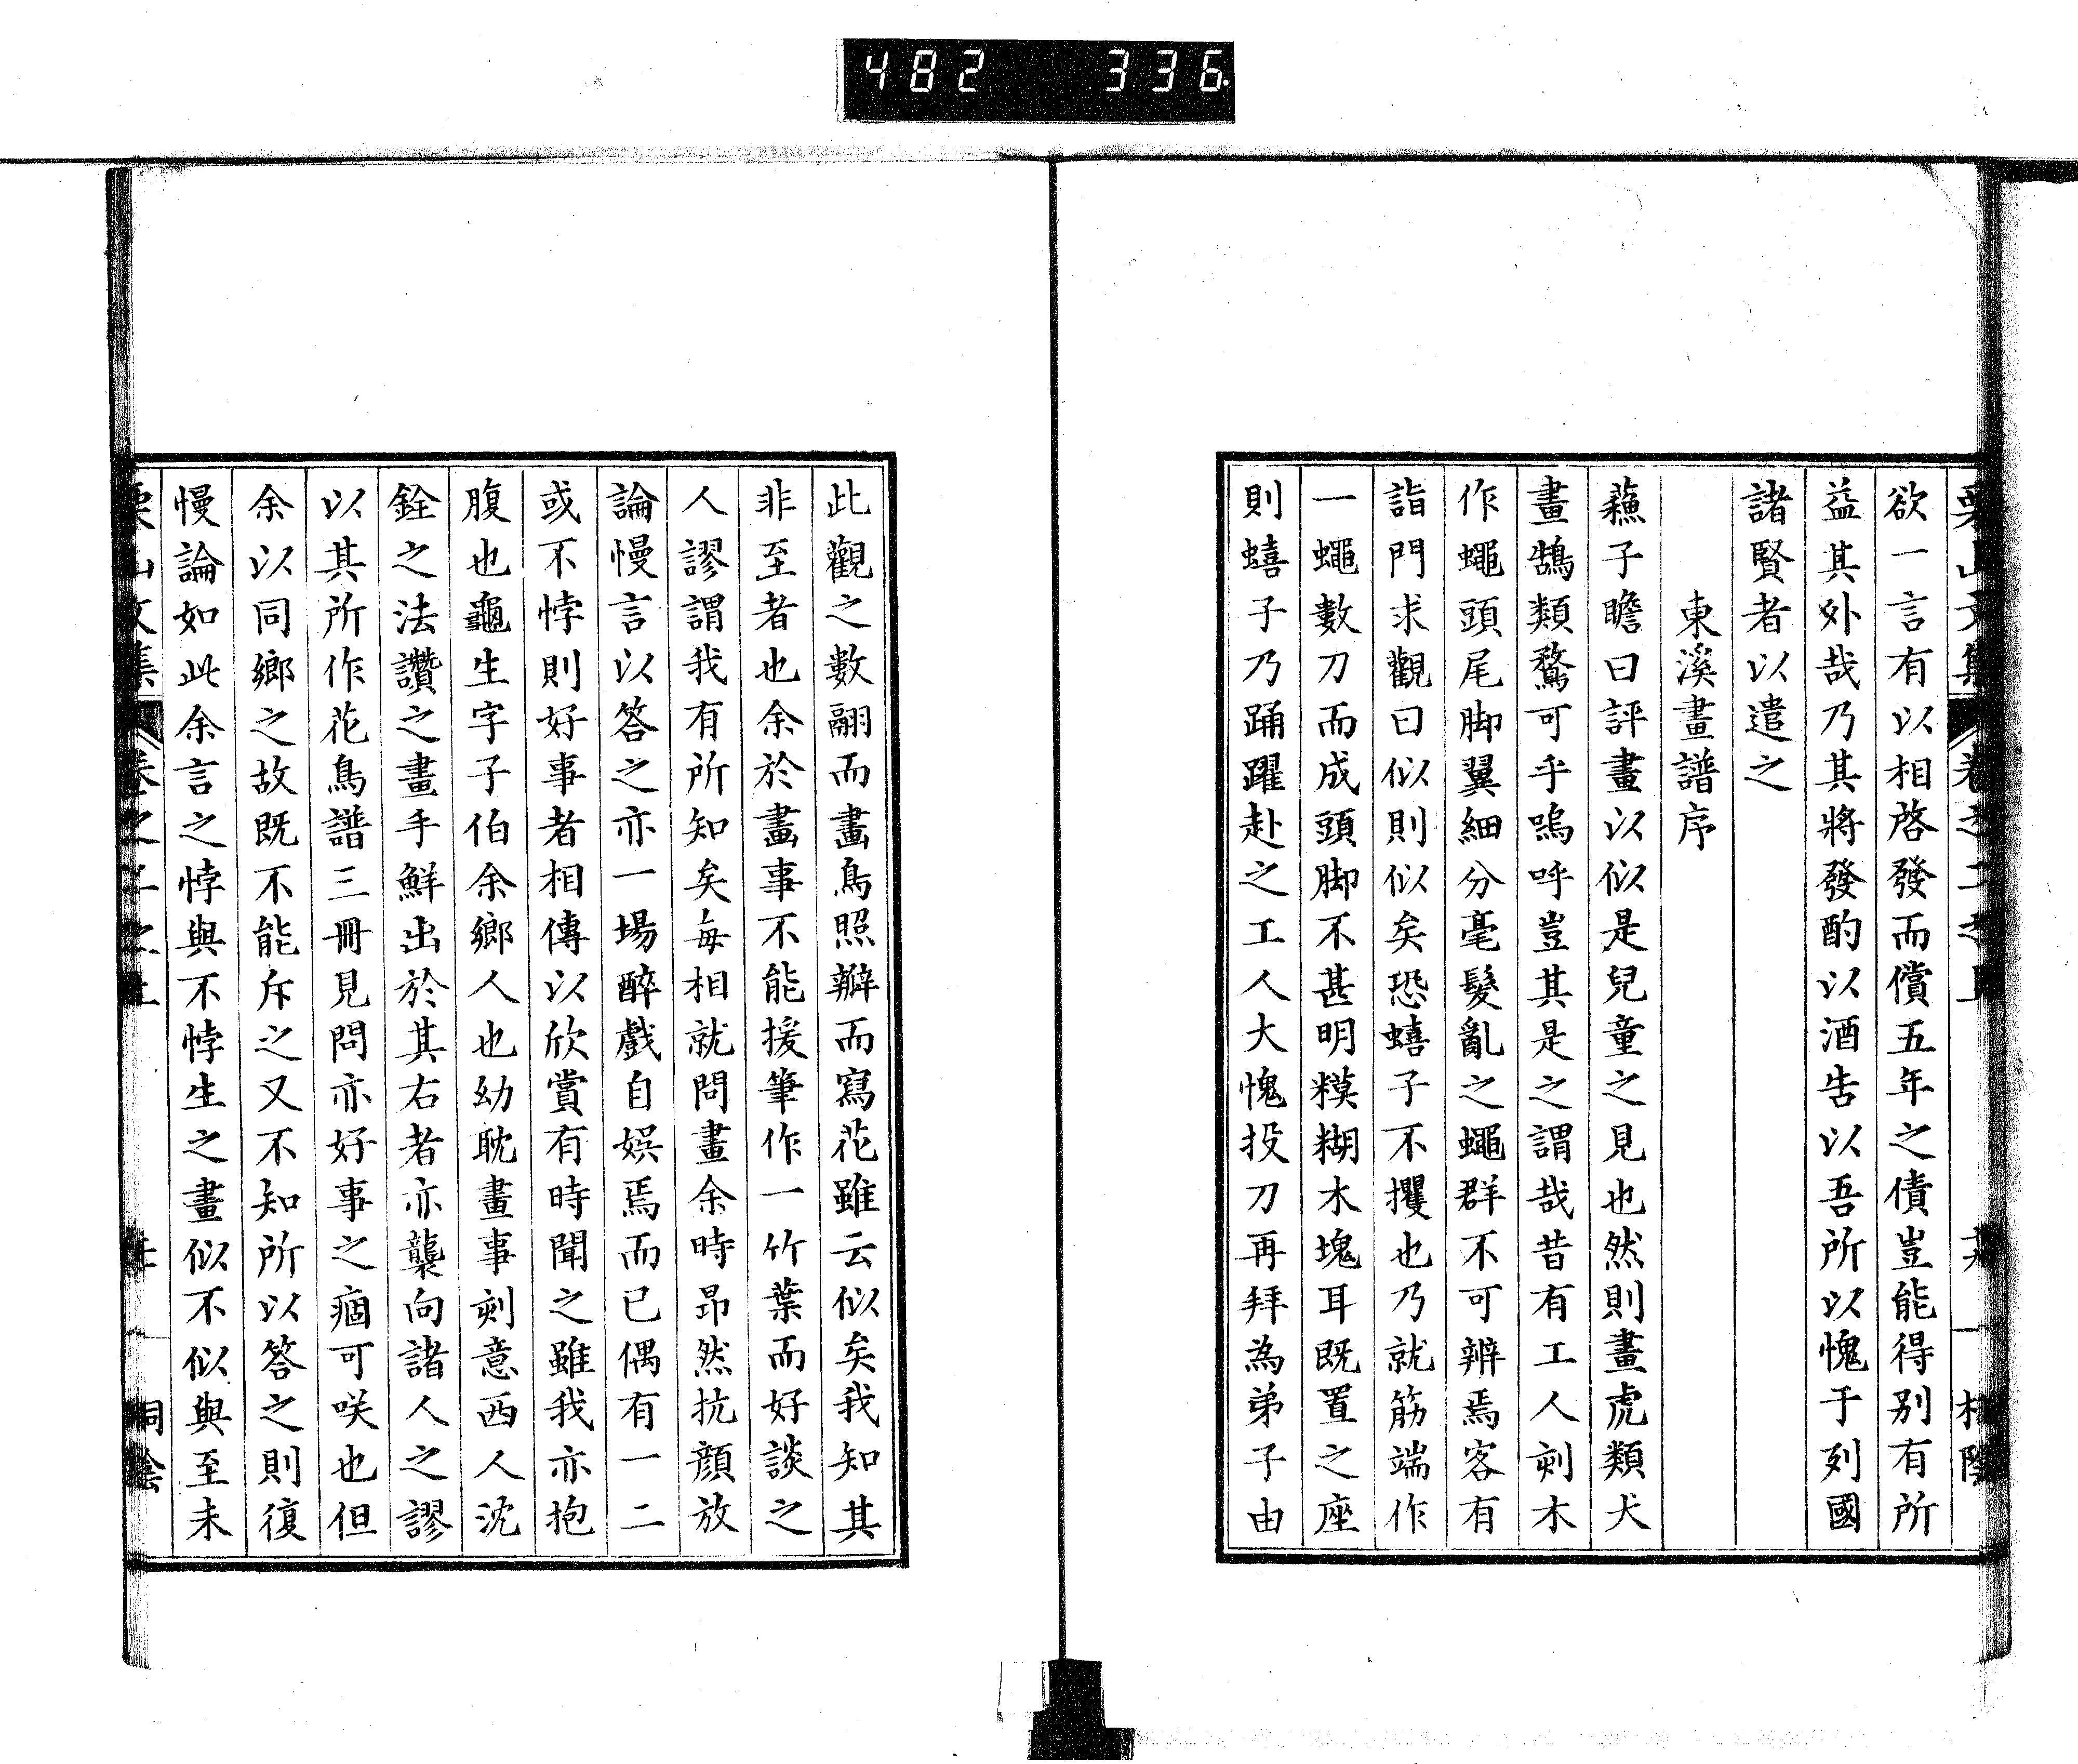 482 336
欲一言有以相啓發而償五年之債豈能得別有所
益其外哉乃其將發酌以酒告以吾所以愧于列國
諸賢者以遣之
東溪畫譜序
蘓子瞻曰評畫以似是兒童之見也然則畫虎類犬
畫鵠類鶩可乎嗚呼豈其是之謂哉昔有工人刻木
作蠅頭尾脚翼細分毫髮亂之蠅群不可辨焉客有
詣門求觀曰似則似矣恐蟢子不攫也乃就筋端作
一蠅數刀而成頭脚不甚明糢糊木塊耳既置之座
則蟢子乃踊躍赴之工人大愧投刀再拜為弟子由
此觀之數翮而畫鳥照瓣而寫花雖云似矣我知其
非至者也余於畫事不能援筆作一竹葉而好談之
人謬謂我有所知矣每相就問畫余時昂然抗顔放
論慢言以答之亦一場醉戲自娯焉而已偶有一二
或不悖則好事者相傳以欣賞有時聞之雖我亦抱
腹也龜生字子伯余鄉人也幼耽畫事刻意西人沈
銓之法讚之畫手鮮出於其右者亦襲向諸人之謬
以其所作花鳥譜三冊見問亦好事之痼可咲也但
余以同鄉之故既不能斥之又不知所以答之則復
慢論如此余言之悖與不悖生之畫似不似與至未